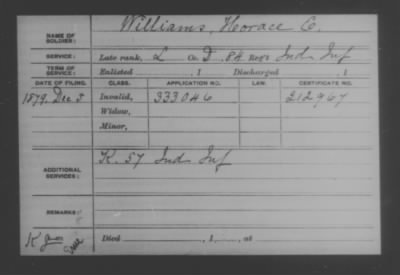 NAME OF SOLDIER: Williams, Horace C.
SERVICE: Late rank, L Co. D, 84 Reg't Ind Inf
TERM OF SERVICE: Enlisted , 1 Discharged , 1
DATE OF FILING. CLASS. APPLICATION NO. LAW. CERTIFICATE NO.
1879, Dec 5 Invalid, 333046 212967
Widow,
Minor,
ADDITIONAL SERVICES: K. 57 Ind Inf
REMARKS:
Died , 1 , at